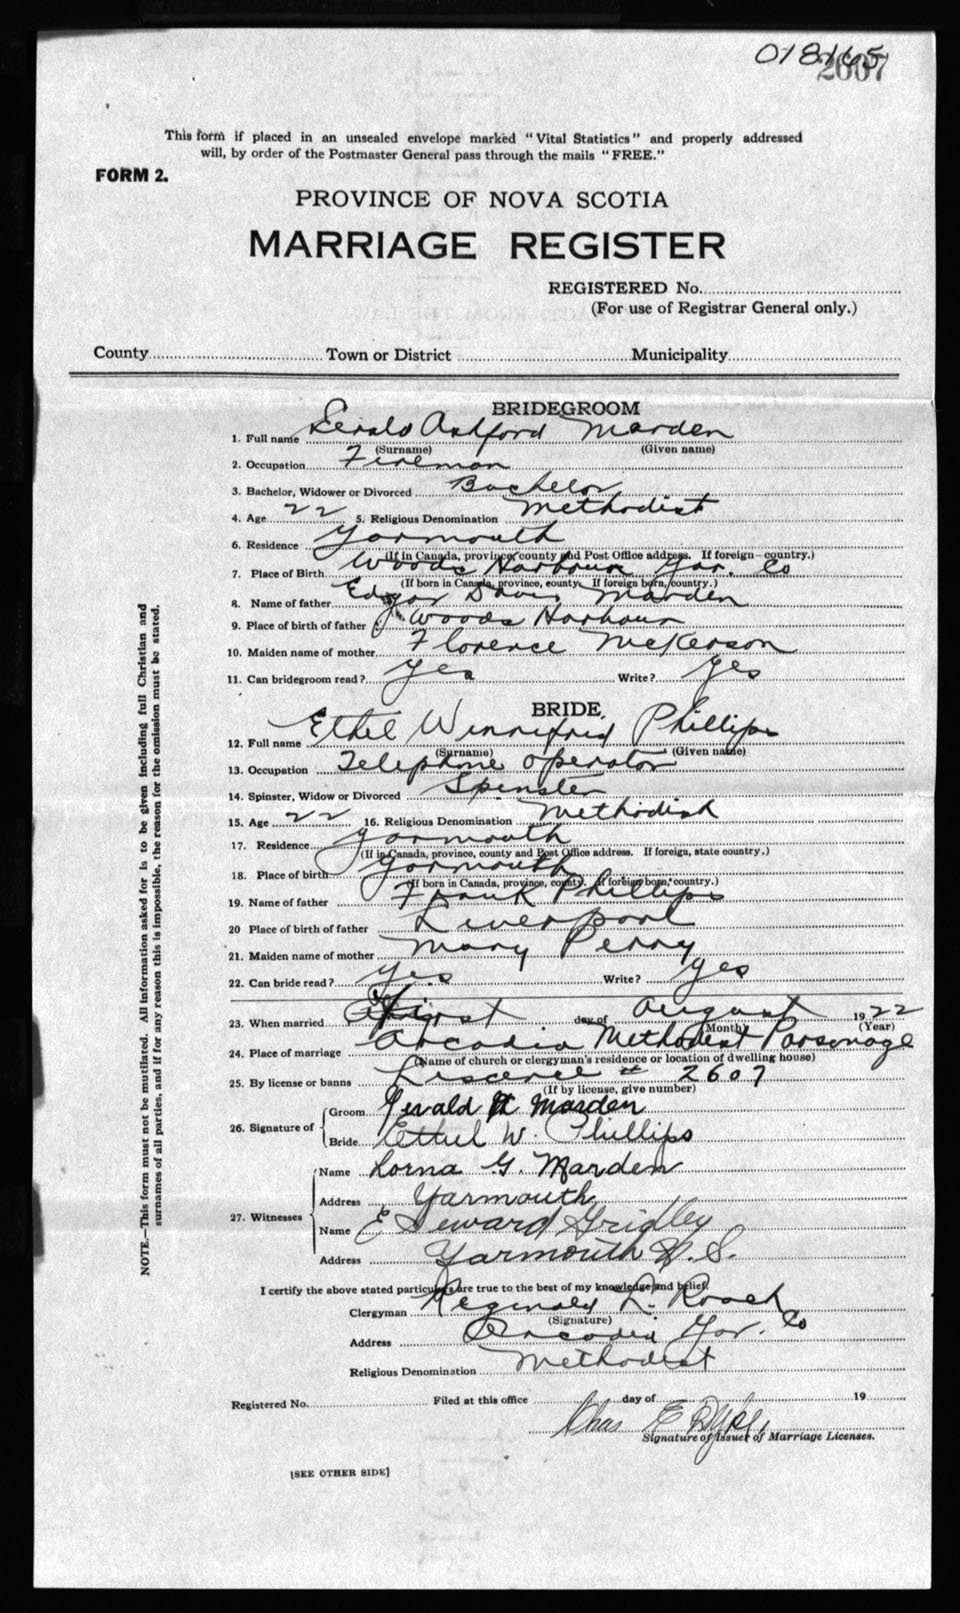 018165
2607
This form if placed in an unsealed envelope marked "Vital Statistics" and properly addressed
will, by order of the Postmaster General pass through the mails "FREE."
FORM 2.
PROVINCE OF NOVA SCOTIA
MARRIAGE REGISTER
REGISTERED No.
(For use of Registrar General only.)
County Town or District Municipality
BRIDEGROOM
1. Full name Gerald Ashford Marden
(Surname) (Given name)
2. Occupation Fireman
3. Bachelor, Widower or Divorced Bachelor
4. Age 22 5. Religious Denomination Methodist
6. Residence Yarmouth
(If in Canada, province, county and Post Office address. If foreign—country.)
7. Place of Birth Woods Harbour Yar. Co
(If born in Canada, province, county. If foreign born, country.)
8. Name of father Edgar Davis Marden
9. Place of birth of father Woods Harbour
10. Maiden name of mother Florence
11. Can bridegroom read? Yes Write? Yes
BRIDE
12. Full name Ethel Winnifrid Phillips
(Surname) (Given name)
13. Occupation Telephone operator
14. Spinster, Widow or Divorced Spinster
15. Age 22 16. Religious Denomination Methodist
17. Residence Yarmouth
(If in Canada, province, county and Post Office address. If foreign, state country.)
18. Place of birth Yarmouth
(If born in Canada, province, county. If foreign born, country.)
19. Name of father Frank Phillips
20 Place of birth of father Liverpool
21. Maiden name of mother Mary Perry
22. Can bride read? Yes Write? Yes
23. When married First day of August 1922
(Month) (Year)
24. Place of marriage Arcadia Methodist Parsonage
(Name of church or clergyman's residence or location of dwelling house)
25. By license or banns Liscence # 2607
(If by license, give number)
26. Signature of Groom Gerald A Marden
Bride Ethel W. Phillips
27. Witnesses Name Lorna G. Marden
Address Yarmouth
Name E Seward Gridley
Address Yarmouth N.S.
I certify the above stated particulars are true to the best of my knowledge and belief.
Clergyman Reginald L. Roach
(Signature)
Address Arcadia Yar. Co
Religious Denomination Methodist
Registered No. Filed at this office day of 19
Chas E
Signature of Issuer of Marriage Licenses.
[SEE OTHER SIDE]
NOTE.—This form must not be mutilated. All information asked for is to be given including full Christian and
surnames of all parties, and if for any reason this is impossible, the reason for the omission must be stated.